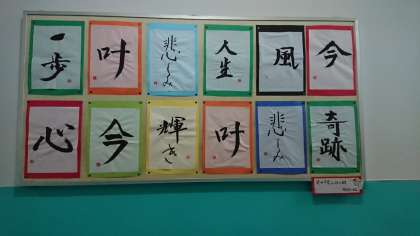 一歩
叶
悲しみ
人生
風
今
心
今
輝き
叶
悲しみ
奇跡